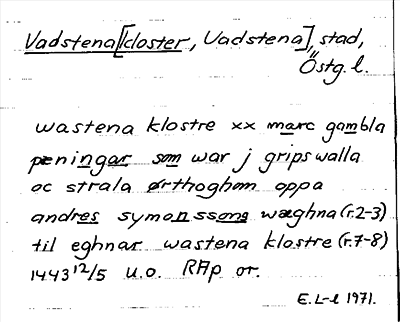 Vadstena[kloster, Vadstena], stad,
Östg. l.
wastena klostre xx marc gambla
peningar som war j gripswalla
oc strala ørthoghom oppa
andres symonssons wæghna (r.2-3)
til eghnar wastena klostre (r.7-8)
1443 12/5 u.o. RAp or.
E. L-l 1971.